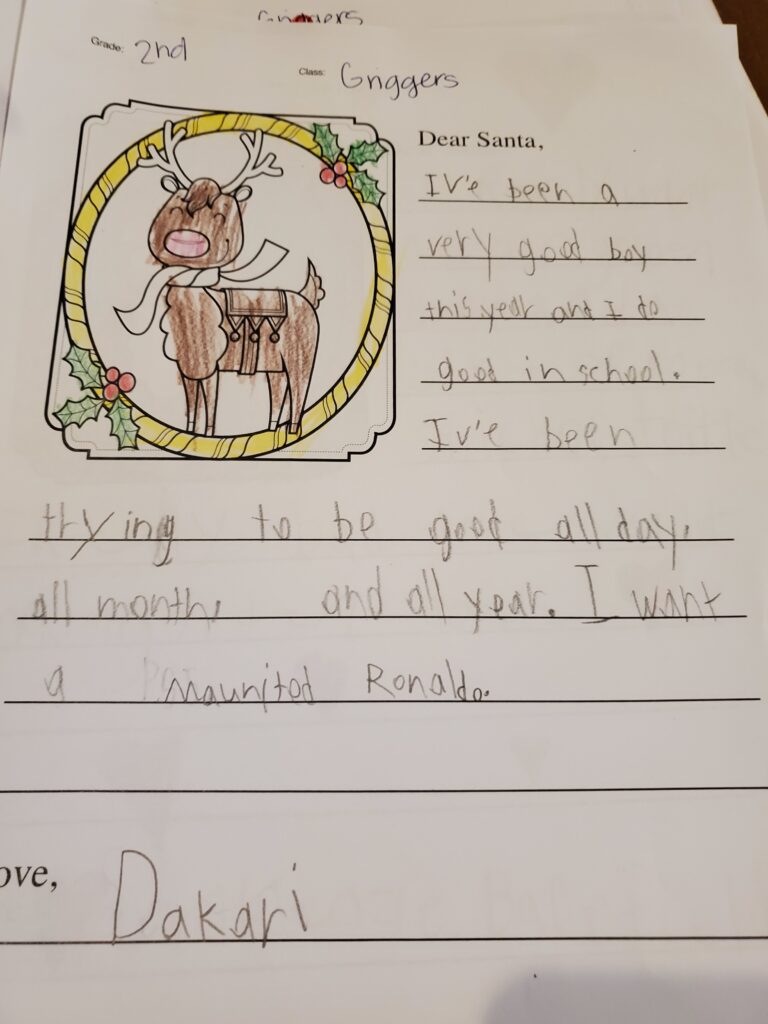 Griggers
Grade: 2nd
Class: Griggers
Dear Santa,
Iv'e been a
very good boy
this year and I do
good in school.
Iv'e been
trying to be good all day,
all month, and all year. I want
a Maunited Ronaldo.
ove,
Dakari